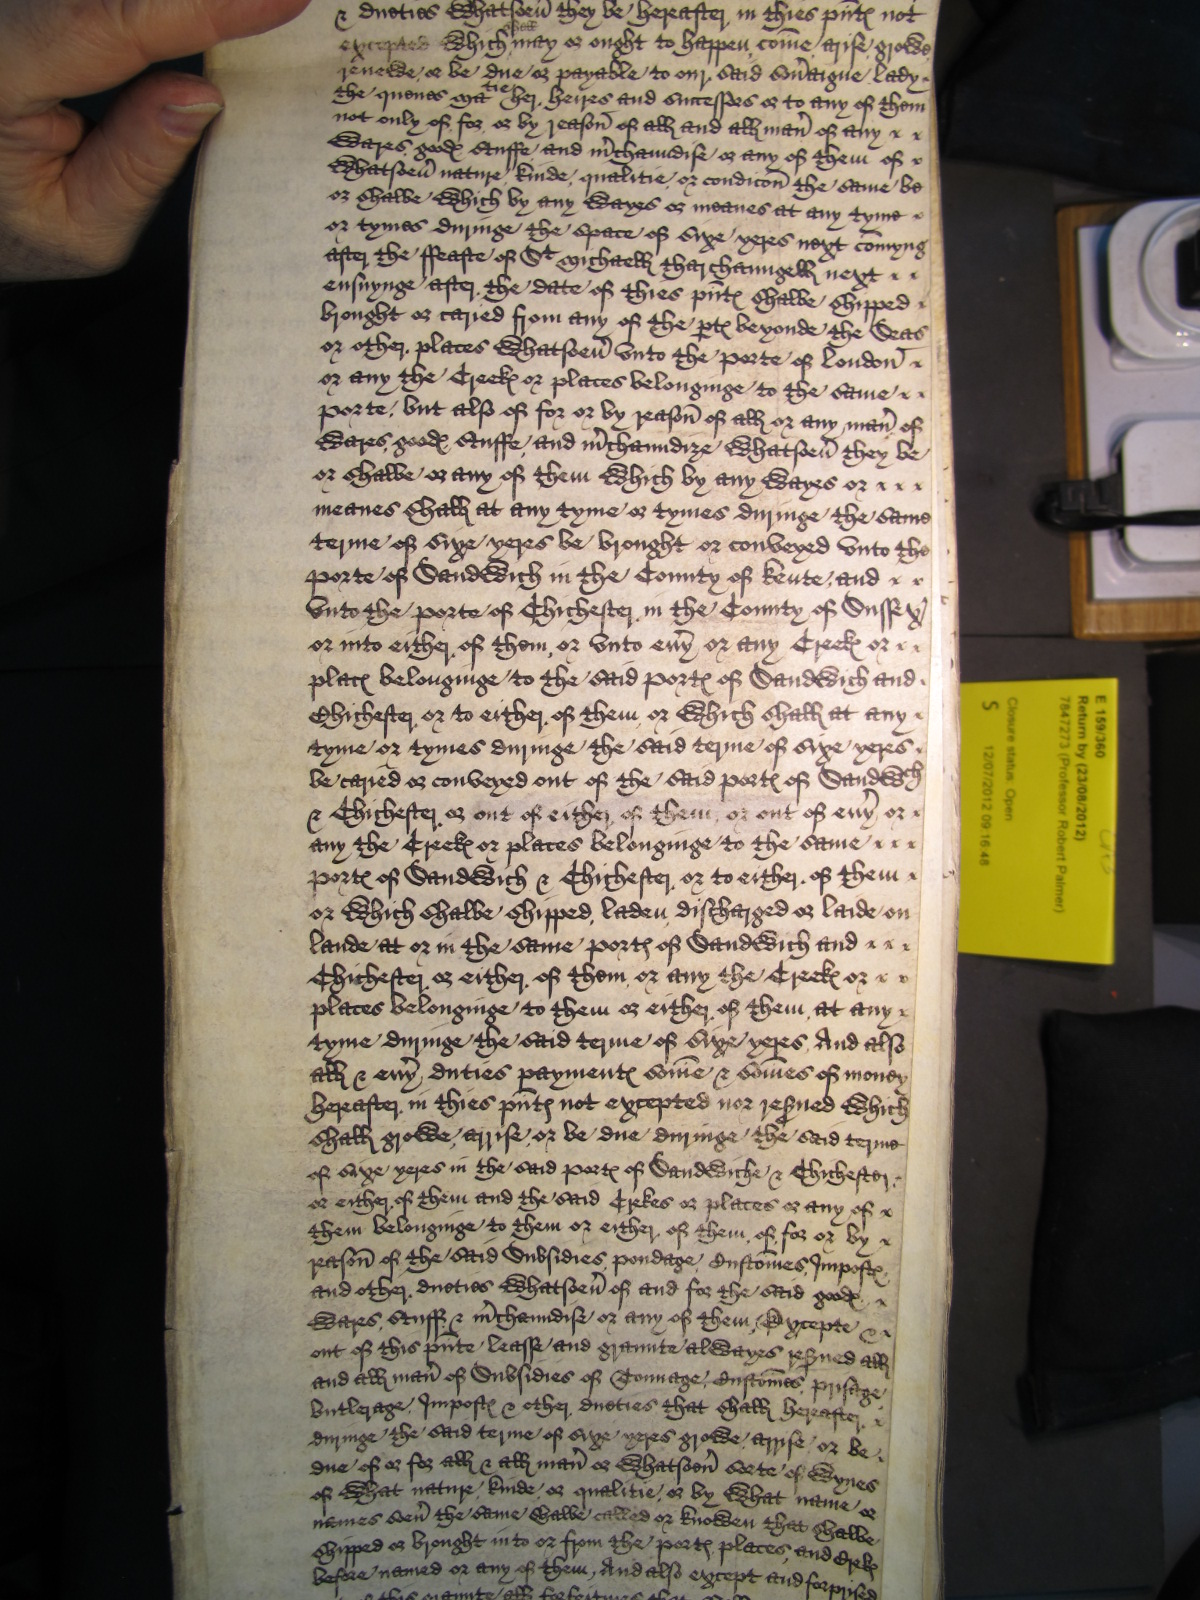 & dueties Whatsoeũ they be hereafter in thies p̃nt℮ not
excepted Which shall may or ought to happen come arise growe
renewe or be due or payable to our said Soũaigne lady
the quenes Matie her heires and successors or to any of them
not only of for or by reason of all and all mañ of any
Wares good℮ stuffe and m̃chaundise or any of them of
Whatsoeũ nature kinde qualitie or condicoñ the same be
or shalbe Which by any Wayes or meanes at any tyme
or tymes duringe the space of sixe yeres next comyng
after the ffeaste of St Michaell tharchaungell next
ensuynge after the date of thies p̃nt℮ shalbe shipped
brought or caried from any of the pt℮ beyonde the Seas
or other places Whatsoeũ vnto the porte of london
or any the Creek℮ or places belonginge to the same
porte, but also of for or by reason of all or any mañ of
Wares good℮ stuffe and m̃chaundize Whatsoeũ they be
or shalbe or any of them Which by any Wayes or
meanes shall at any tyme or tymes duringe the same
terme of sixe yeres be brought or conveyed vnto the
porte of Sandwich in the County of kente and
vnto the porte of Chichester in the County of Sussex
or into either of them or vnto eũy or any Creek℮ or
plac℮ belonginge to the said port℮ of Sandwich and
Chichester or to either of them or Which shall at any
tyme or tymes duringe the said terme of sixe yeres
be caried or conveyed out of the said port℮ of Sandwch
& Chichester or out of either of them or out of eũy or
any the Creek℮ or places belonginge to the same
port℮ of Sandwich & Chichester or to either of them
or Which shalbe shipped laden discharged or laide on
lande at or in the same port℮ of Sandwich and
Chichester or either of them or any the Creek℮ or
places belonginge to them or either of them at any
tyme duringe the said terme of sixe yeres And also
all & eũy duties payment℮ som̃e & som̃es of money
hereafter in thies p̃nt℮ not excepted nor res̃ued Which
shall growe arrise or be due duringe the said terme
of sixe yeres in the said port℮ of Sandwiche & Chichester
or either of them and the said Crekes or places or any of
them belonginge to them or either of them of for or by
reason of the said Subsidies pondage Customes Impost℮
and other dueties Whatsoeũ of and for the said good℮
Wares stuff℮ & m̃chaundise or any of them, Excepte &
out of this p̃nte leasse and graunte alwayes res̃ued all
and all mañ of Subsidies of Tonnage Customes prisage
butlerage Impost℮ & other dueties that shall hereafter
duringe the said terme of sixe yeres growe arrise or be
due of or for all & all mañ or Whatsoeũ sorte of Wynes
of What nature kinde or qualitie or by What name or
names soeũ the same shalbe called or knowen that shalbe
shipped or brought into or from the port℮ places and Crek℮
before named or any of them, And also except and forprised
E 159/360
Return by (23/08/2012)
7847273 (Professor Robert Palmer)
Closure status: Open
S 12/07/2012 09:16:48